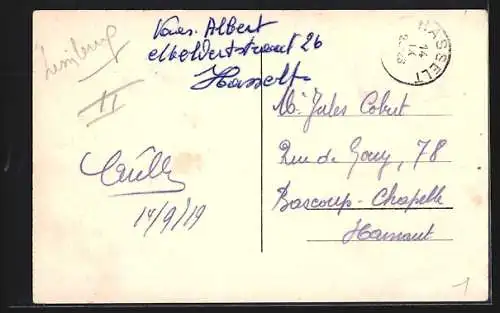 Limburg
II
Vaes. Albert
straat 26
Hasselt
HASSELT
14
IX
14/9/19
Mr Jules Cobut
Rue de Gouy, 78
Bascoup-Chapelle
Hainaut
1